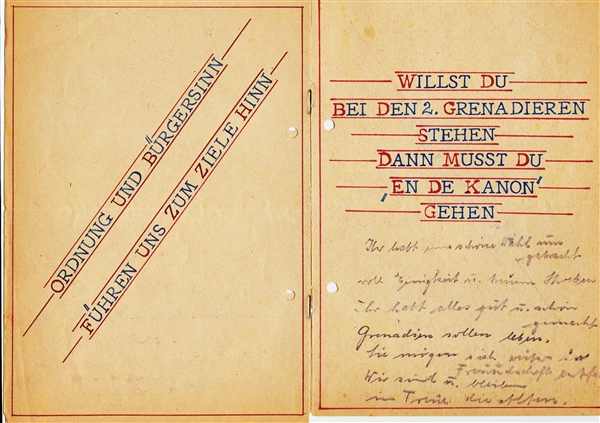 ORDNUNG UND BÜRGERSINN
FÜHREN UNS ZUM ZIELE HINN
WILLST DU
BEI DEN 2. GRENADIEREN
STEHEN
DANN MUSST DU
„EN DE KANON“
GEHEN
Ihr habt uns schöne Wahl
gebracht
voll Einigkeit u.
Ihr habt alles gut u. schön
gemacht
Grenadier sollen leben.
Sie mögen sich weiter in
Freundschaft
Wir sind u. bleiben
in Treue die Alten.